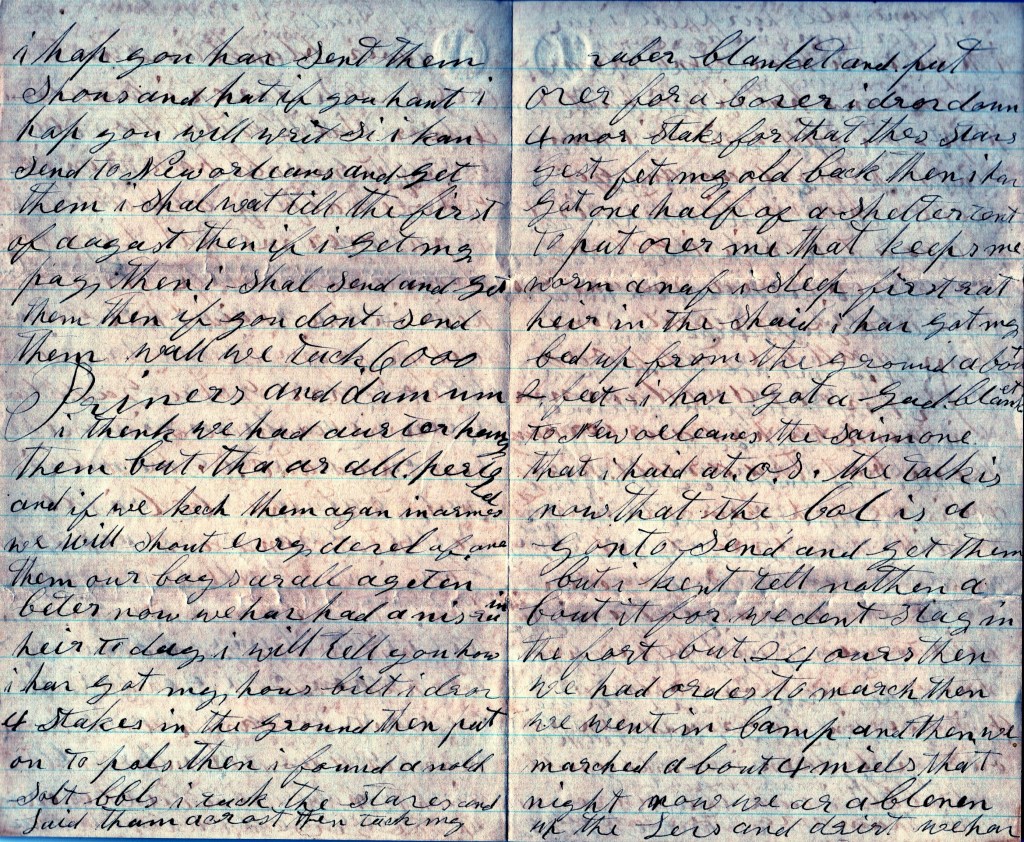 i hap you har sent them
Shous and hat if you hant i
hap you will writ si i kan
send to New orleans and get
them i shal wat till the first
of dagast then if i get my
pay then i shal send and get
them then if you dont send
them wall we tack 6000
Priners and dam um
i think we had aurter hang
them but tha ar all perled
and if we kech them agan in armes
we will shout erry derel of one
them our boys ar all a geten
beter now we har had a nis rain
heir to day i will tell you how
i har got my hous bilt i dror
4 stakes in the ground then put
on to pols then i found a nold
Solt bbls i tack the stares and
Laid tham acrost then tack my
raber blanket and put
orer for a borer i dror doun
4 mor staks for that thes stars
gest fet my old back then i har
got one half of a shelter tent
to put orer me that keeps me
worm a naf i sleep first rat
heir in the shaid i har got my
bed up from the ground a bot
2 feet i har got a gud blanket
to New orleanes the saim one
that i haid at O.S. the talk is
now that the Col is a
gon to send and get them
but i kent tell nothen a
bout it for we dont stay in
the fort but 24 ours then
we had order to march then
we went in Camp and then we
marched a bout 4 miels that
night now we ar a blonen
up the Lers and dairt we har